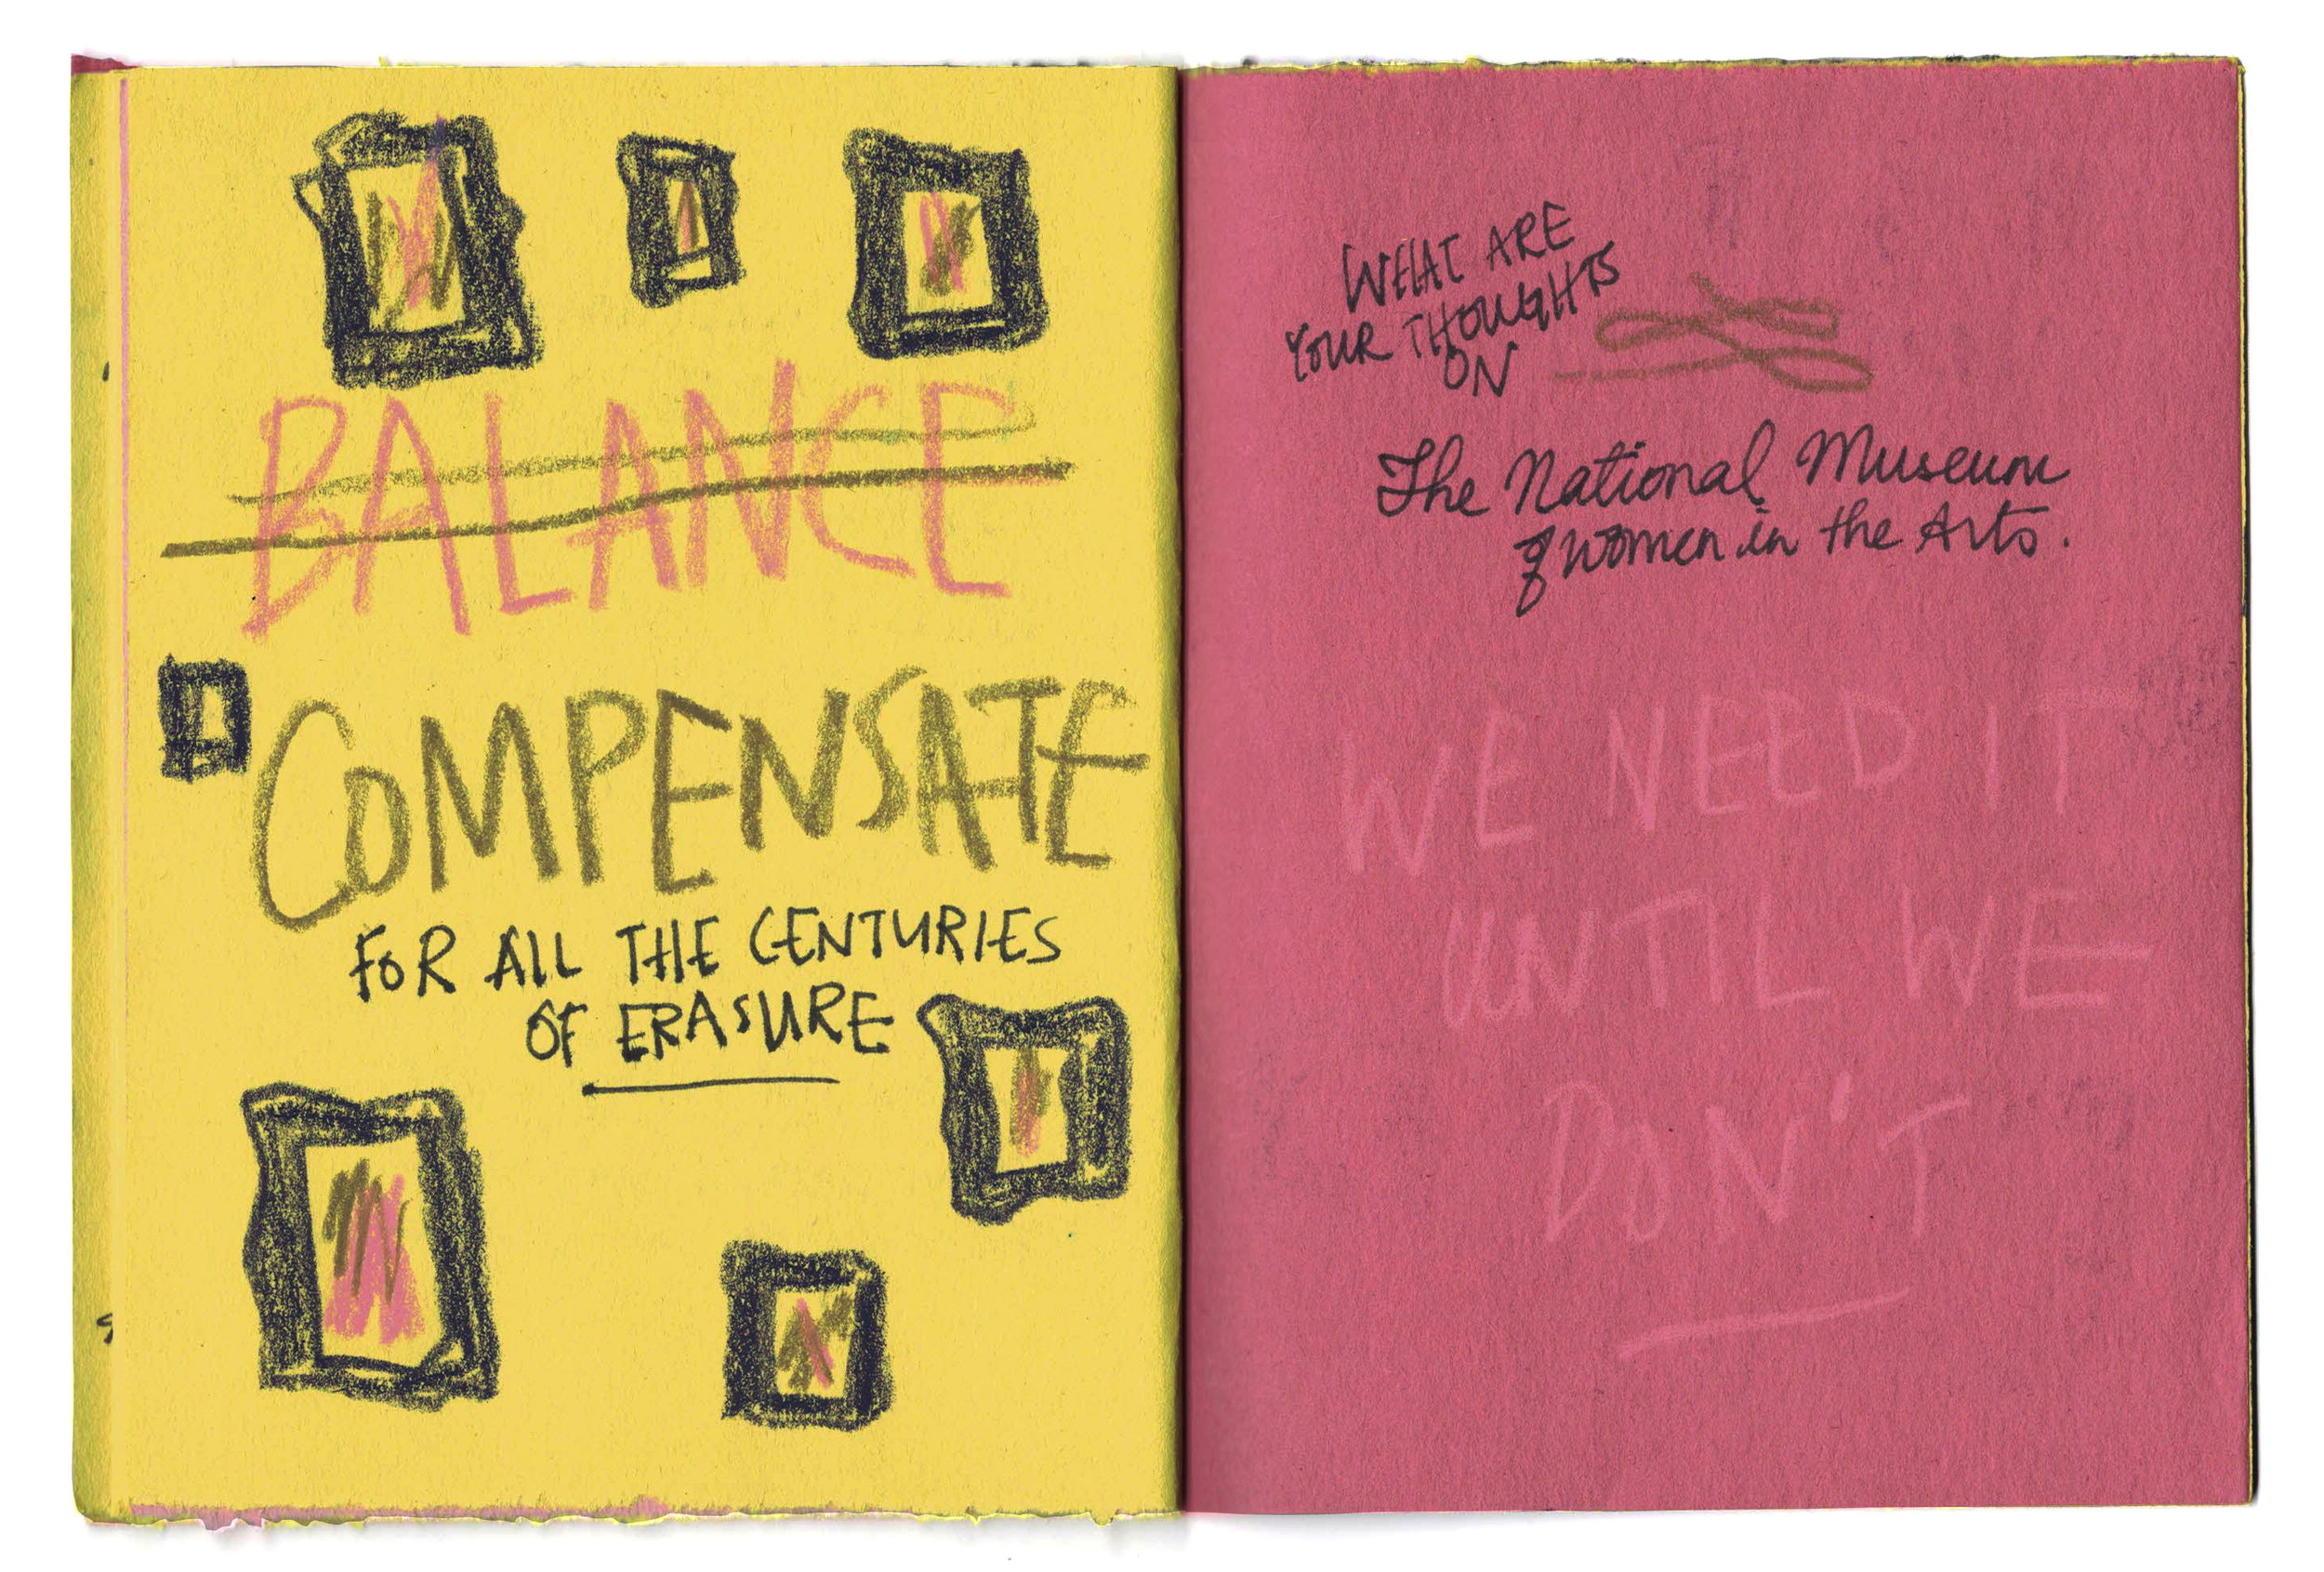 BALANCE
COMPENSATE
FOR ALL THE CENTURIES
OF ERASURE
WHAT ARE
YOUR THOUGHTS
ON
The National Museum
of Women in the Arts.
WE NEED IT
UNTIL WE
DON'T